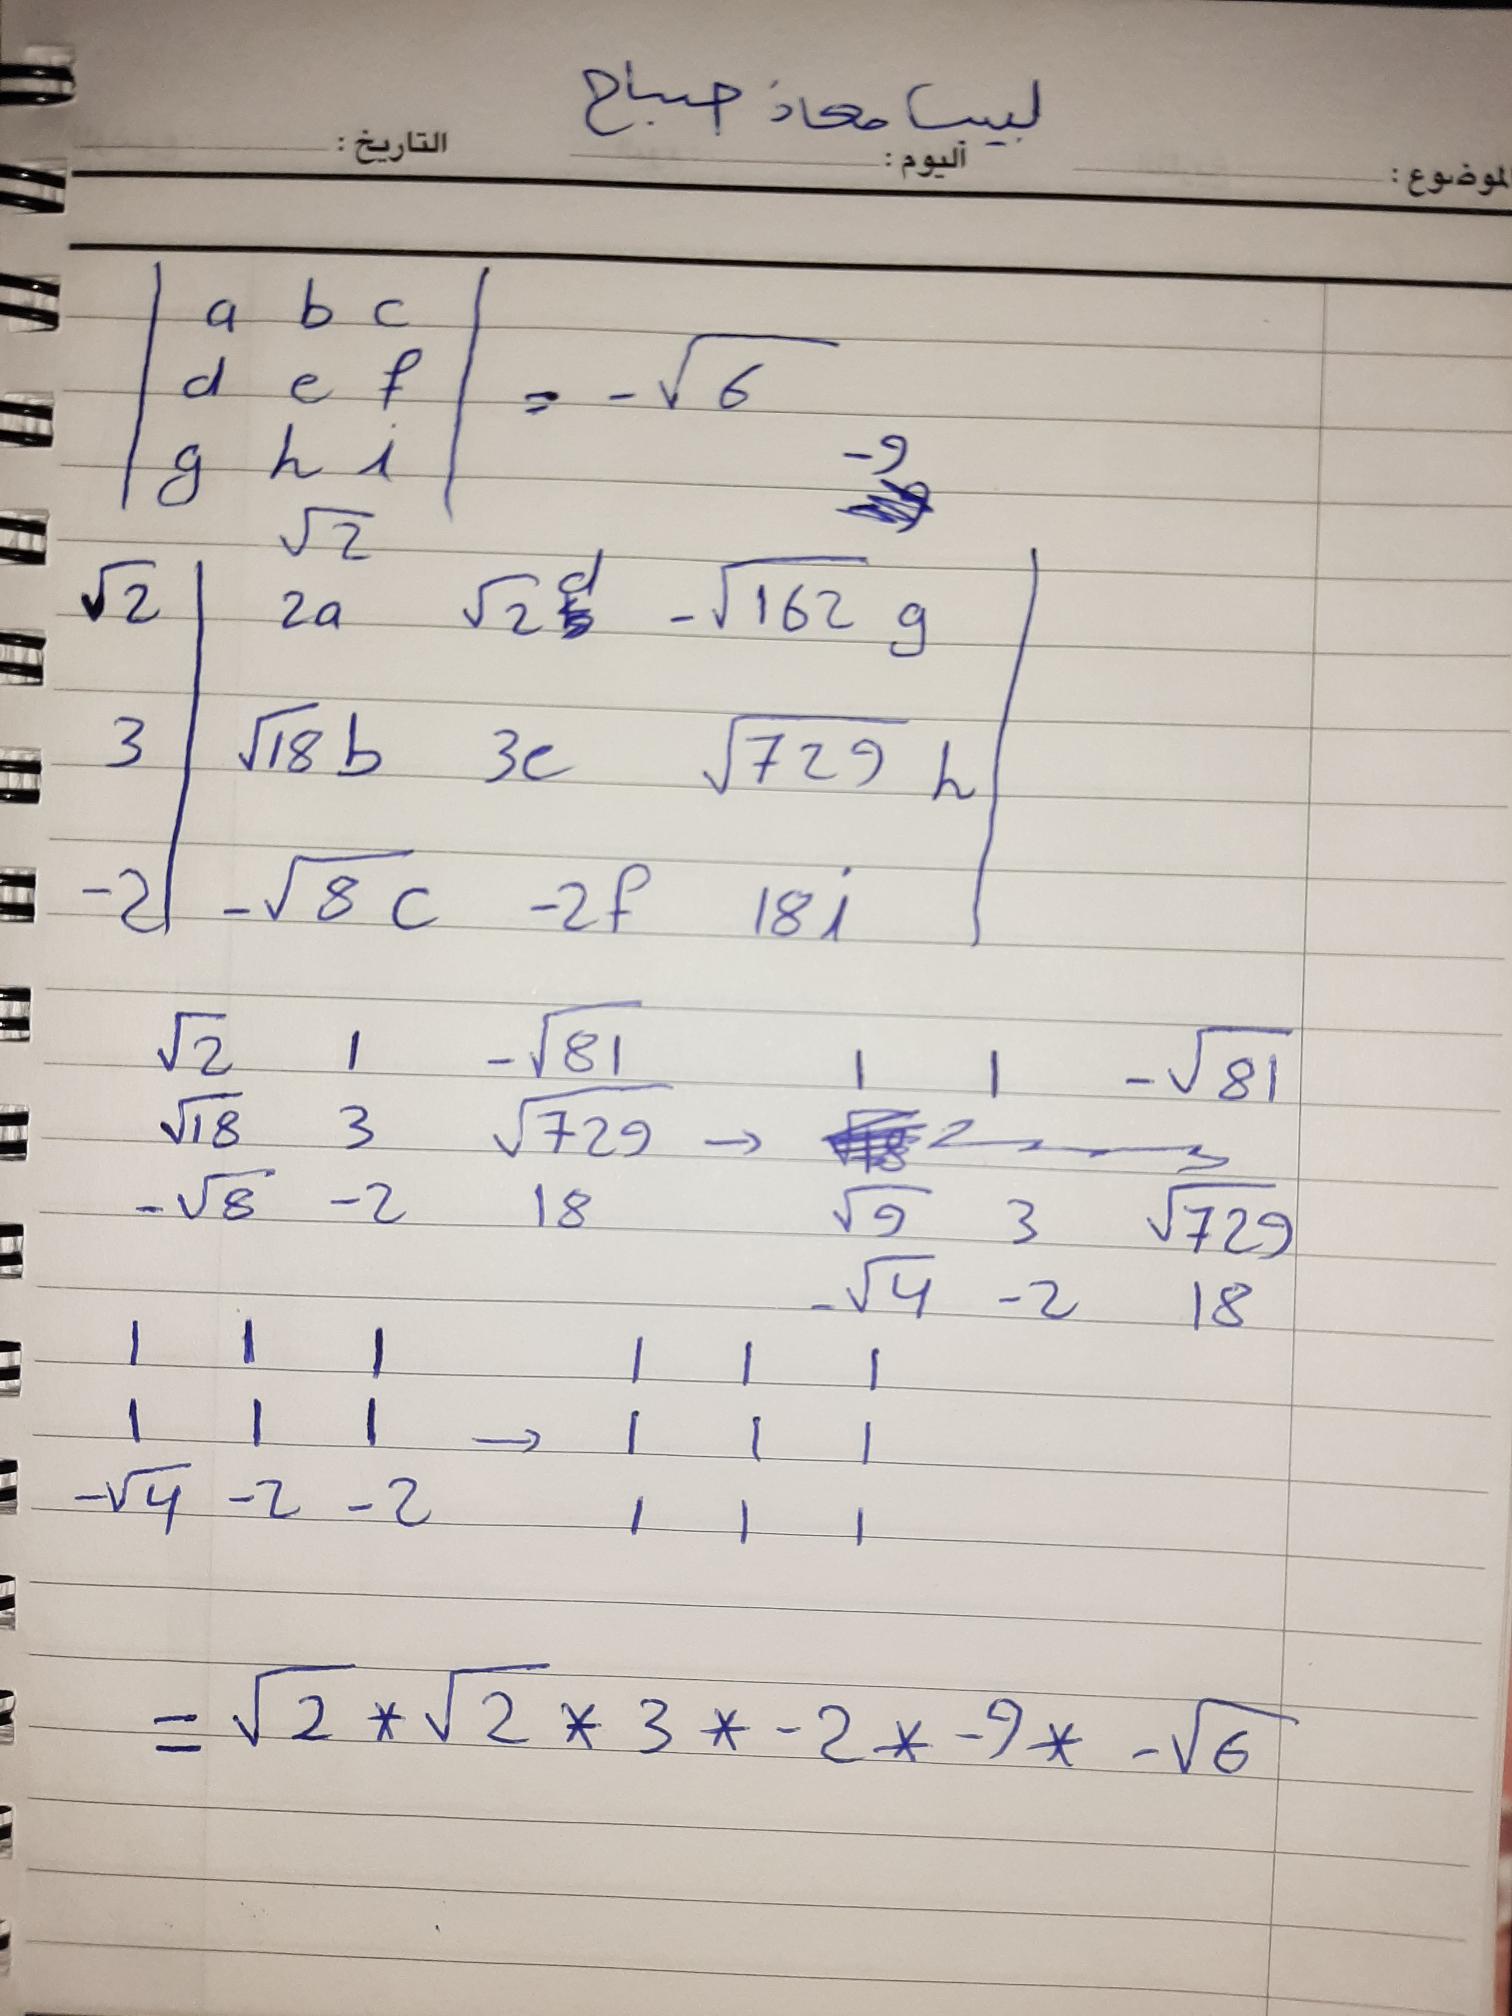 لبيب معاذ صباح
الموضوع: اليوم: التاريخ:
| a b c |
| d e f | = -√6
| g h i |
-9
√2
√2 | 2a √2 d -√162 g |
3 | √18 b 3e √729 h |
-2 | -√8 c -2f 18i |
√2 1 -√81 1 1 -√81
√18 3 √729 →
-√8 -2 18 √9 3 √729
-√4 -2 18
1 1 1 1 1 1
1 1 1 → 1 1 1
-√4 -2 -2 1 1 1
= √2 * √2 * 3 * -2 * -9 * -√6